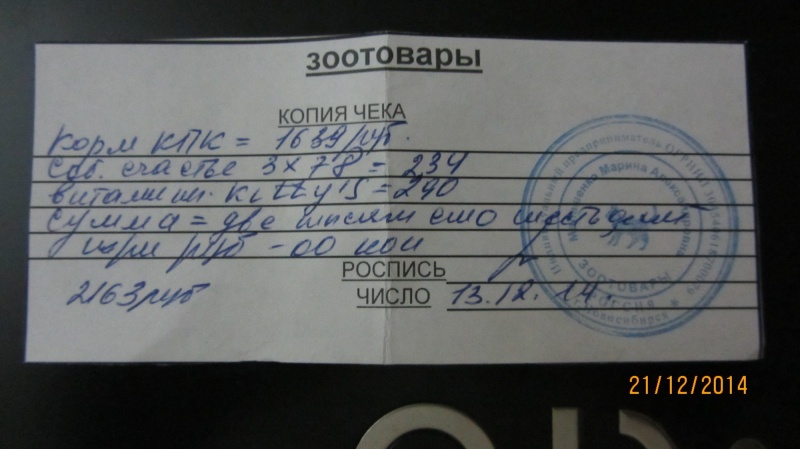 зоотовары
КОПИЯ ЧЕКА
Корм КПК = 1639 руб.
Соб. счастье 3 x 78 = 234
витамин. Kitty's = 290
Сумма = две тысячи сто шестьдесят
три руб - 00 коп
РОСПИСЬ
2163 руб
ЧИСЛО 13.12.14г.
Марина Александровна
ЗООТОВАРЫ
РОССИЯ
Новосибирск
предприниматель ОГРНИП
21/12/2014